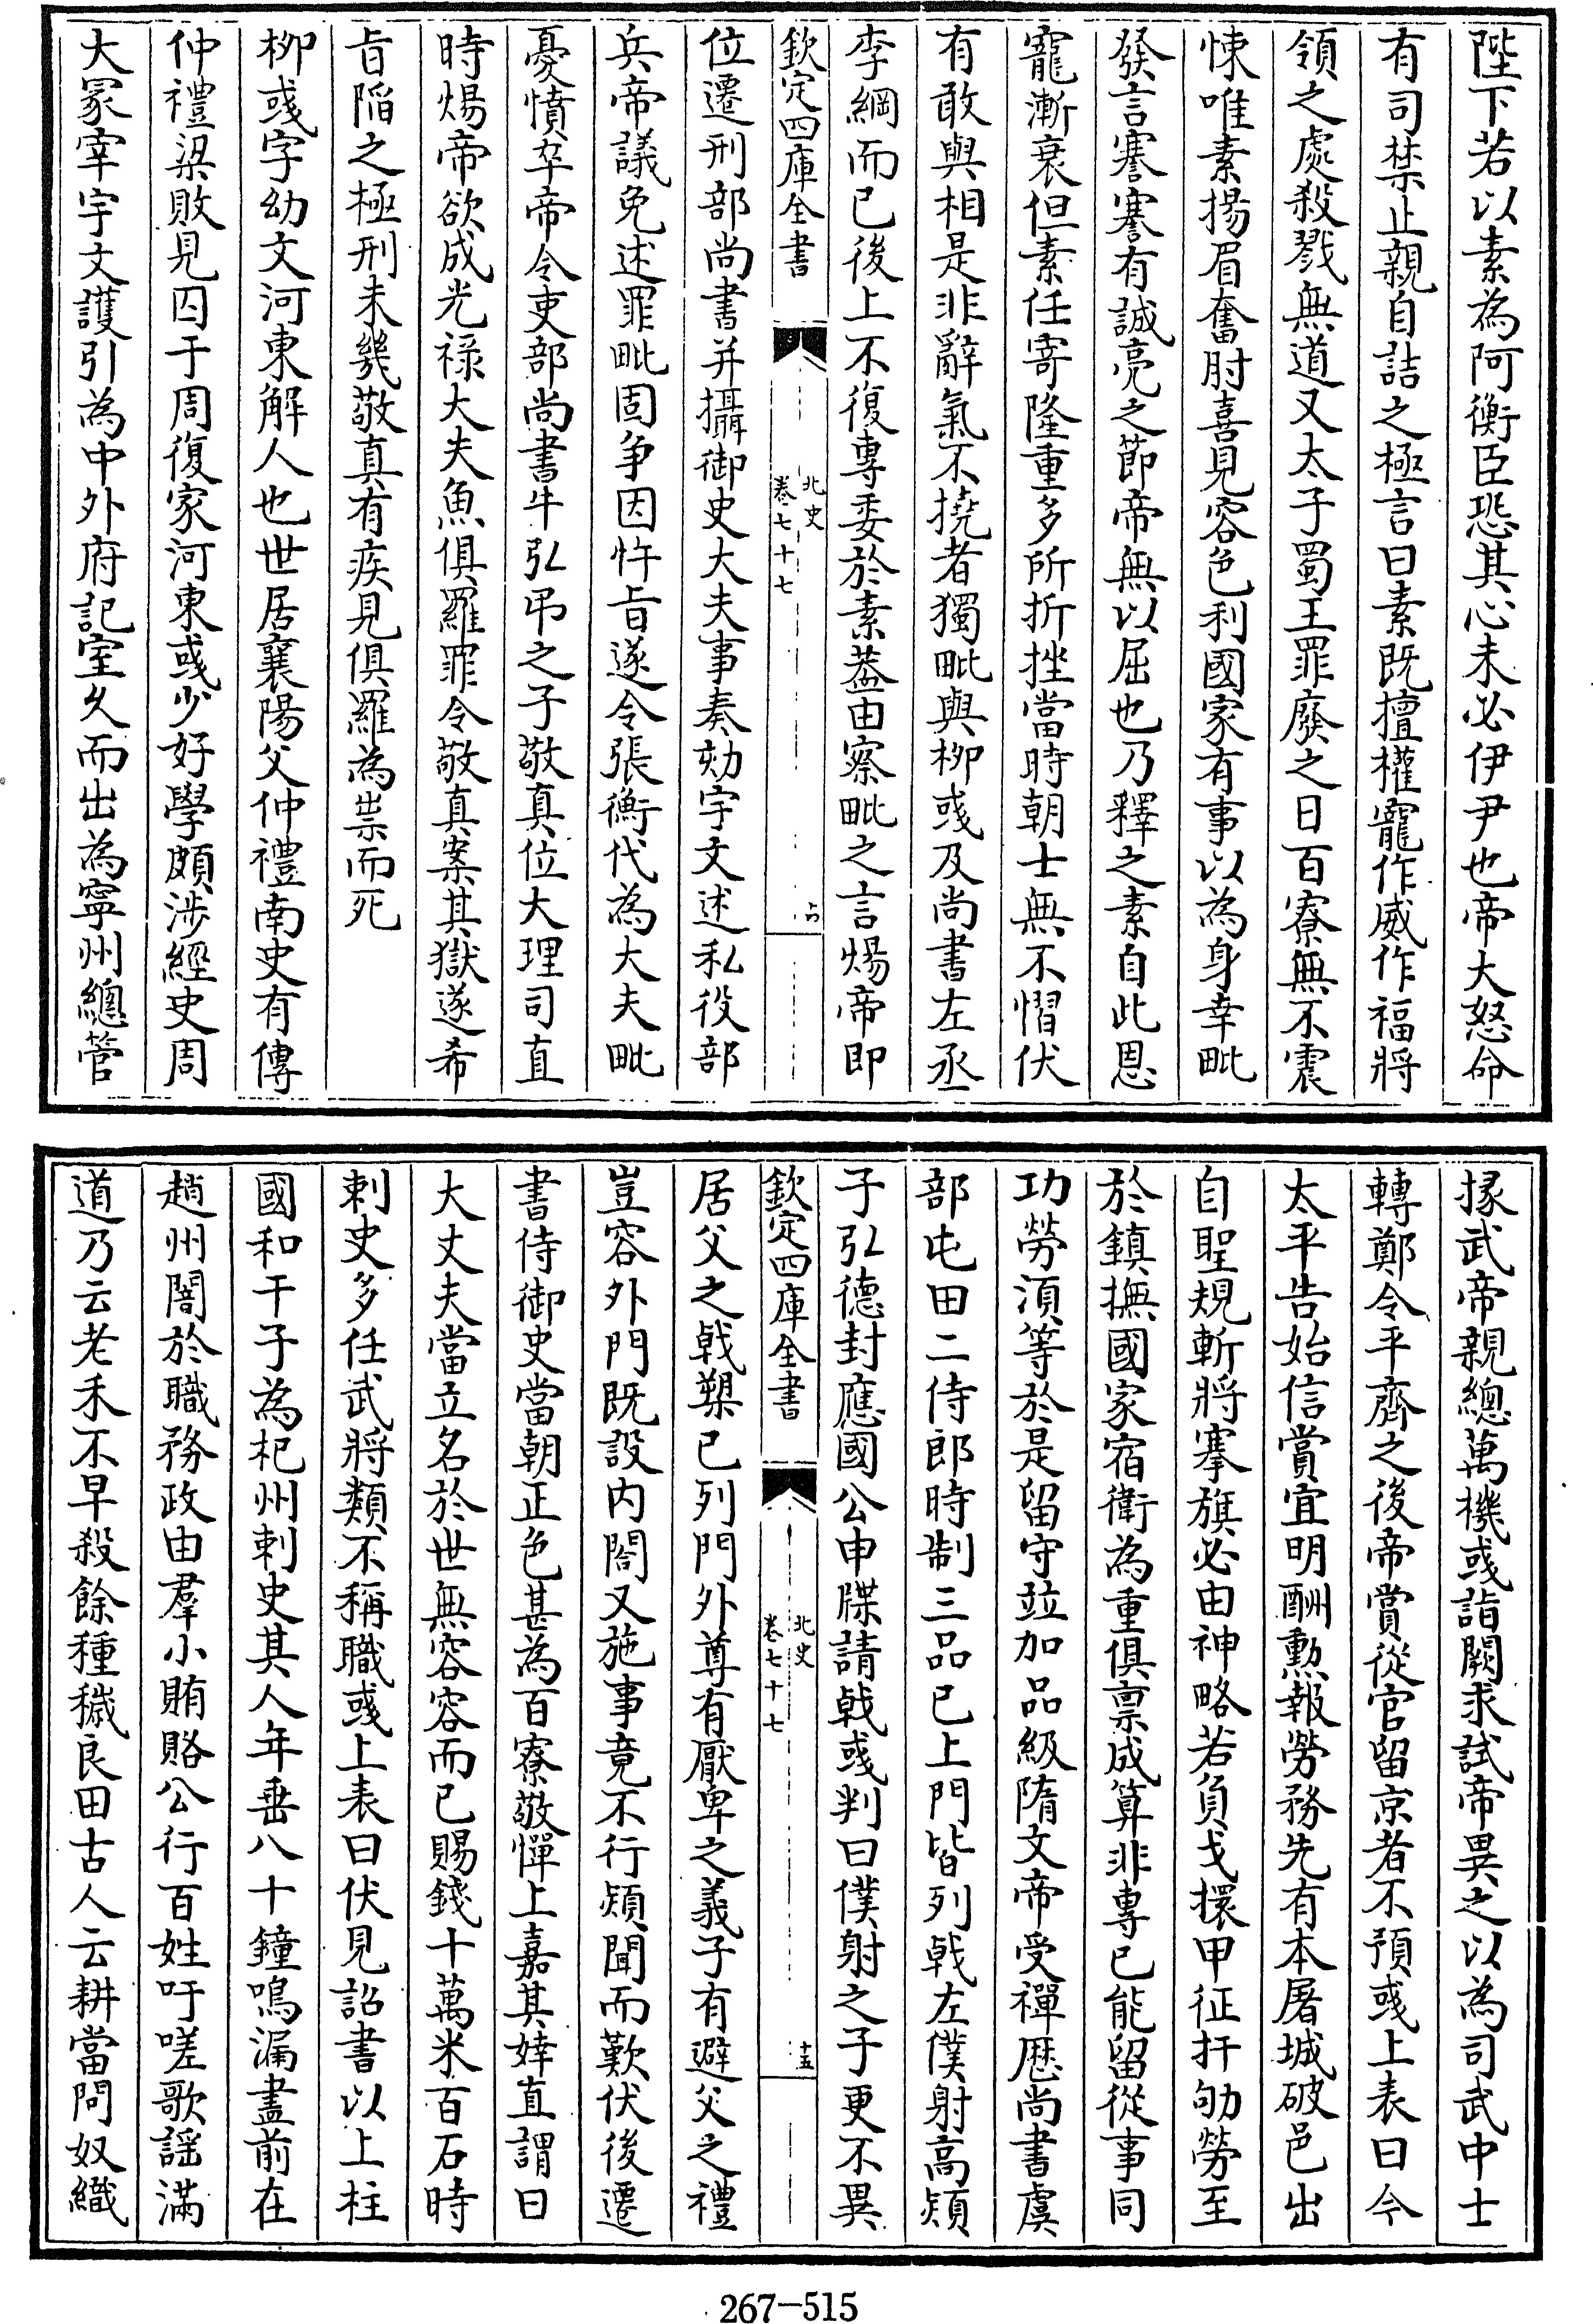 陛下若以素為阿衡臣恐其心未必伊尹也帝大怒命
有司禁止親自詰之極言曰素既擅權寵作威作福將
領之處殺戮無道又太子蜀王罪廢之日百寮無不震
悚唯素揚眉奮肘喜見容色利國家有事以為身幸毗
發言謇謇有誠亮之節帝無以屈也乃釋之素自此恩
寵漸衰但素任寄隆重多所折挫當時朝士無不慴伏
有敢與相是非辭氣不撓者獨毗與栁彧及尚書左丞
李綱而已後上不復專委於素葢由察毗之言煬帝即
欽定四庫全書
北史
卷七十七
占
位遷刑部尚書并攝御史大夫事奏劾宇文述私役部
兵帝議免述罪毗固争因忤㫖遂令張衡代為大夫毗
憂憤卒帝令吏部尚書牛弘弔之子敬真位大理司直
時煬帝欲成光禄大夫魚俱羅罪令敬真案其獄遂希
㫖陷之極刑未幾敬真有疾見俱羅為祟而死
栁彧字幼文河東解人也世居襄陽父仲禮南史有傳
仲禮梁敗見囚于周復家河東彧少好學頗涉經史周
大冢宰宇文護引為中外府記室久而出為寧州總管
掾武帝親總萬機彧詣闕求試帝異之以為司武中士
轉鄭令平齊之後帝賞從官留京者不預彧上表曰今
太平告始信賞宜明酬勲報勞務先有本屠城破邑出
自聖規斬將搴旗必由神略若負戈擐甲征扞劬勞至
於鎮撫國家宿衛為重俱禀成算非專已能留從事同
功勞須等於是留守竝加品級隋文帝受禪歴尚書虞
部屯田二侍郎時制三品已上門皆列㦸左僕射高熲
子弘德封應國公申牒請㦸彧判曰僕射之子更不異
欽定四庫全書
北史
卷七十七
十五
居父之㦸槊已列門外尊有厭卑之義子有避父之禮
豈容外門既設内閤又施事竟不行熲聞而歎伏後遷
書侍御史當朝正色甚為百寮敬憚上嘉其婞直謂曰
大丈夫當立名於世無容容而已賜錢十萬米百石時
刺史多任武將類不稱職彧上表曰伏見詔書以上柱
國和干子為杞州刺史其人年垂八十鐘鳴漏盡前在
趙州闇於職務政由羣小賄賂公行百姓吁嗟歌謡滿
道乃云老禾不早殺餘種穢良田古人云耕當問奴織
267-515